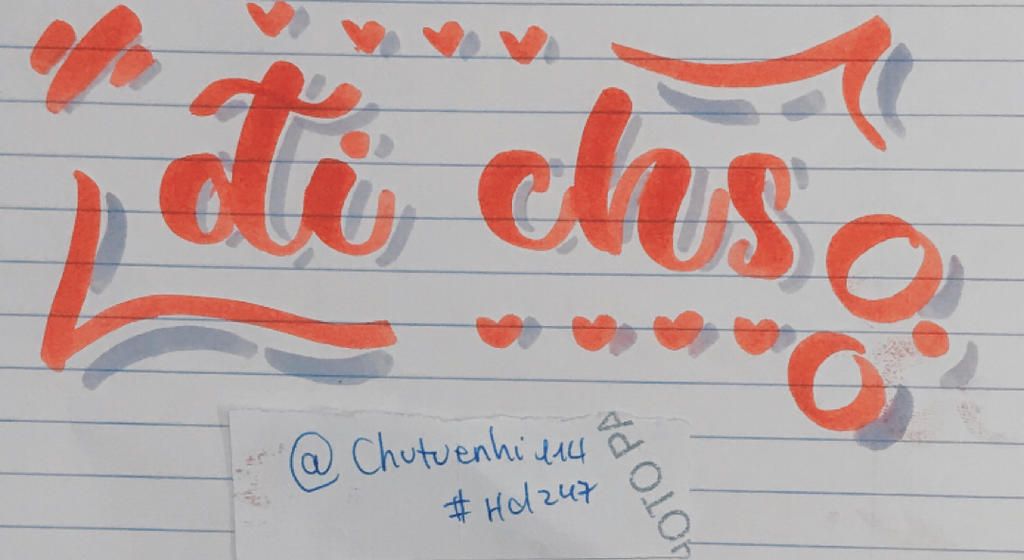 đi chs
@Chutuenhi 114
#Hd247
OTO PA